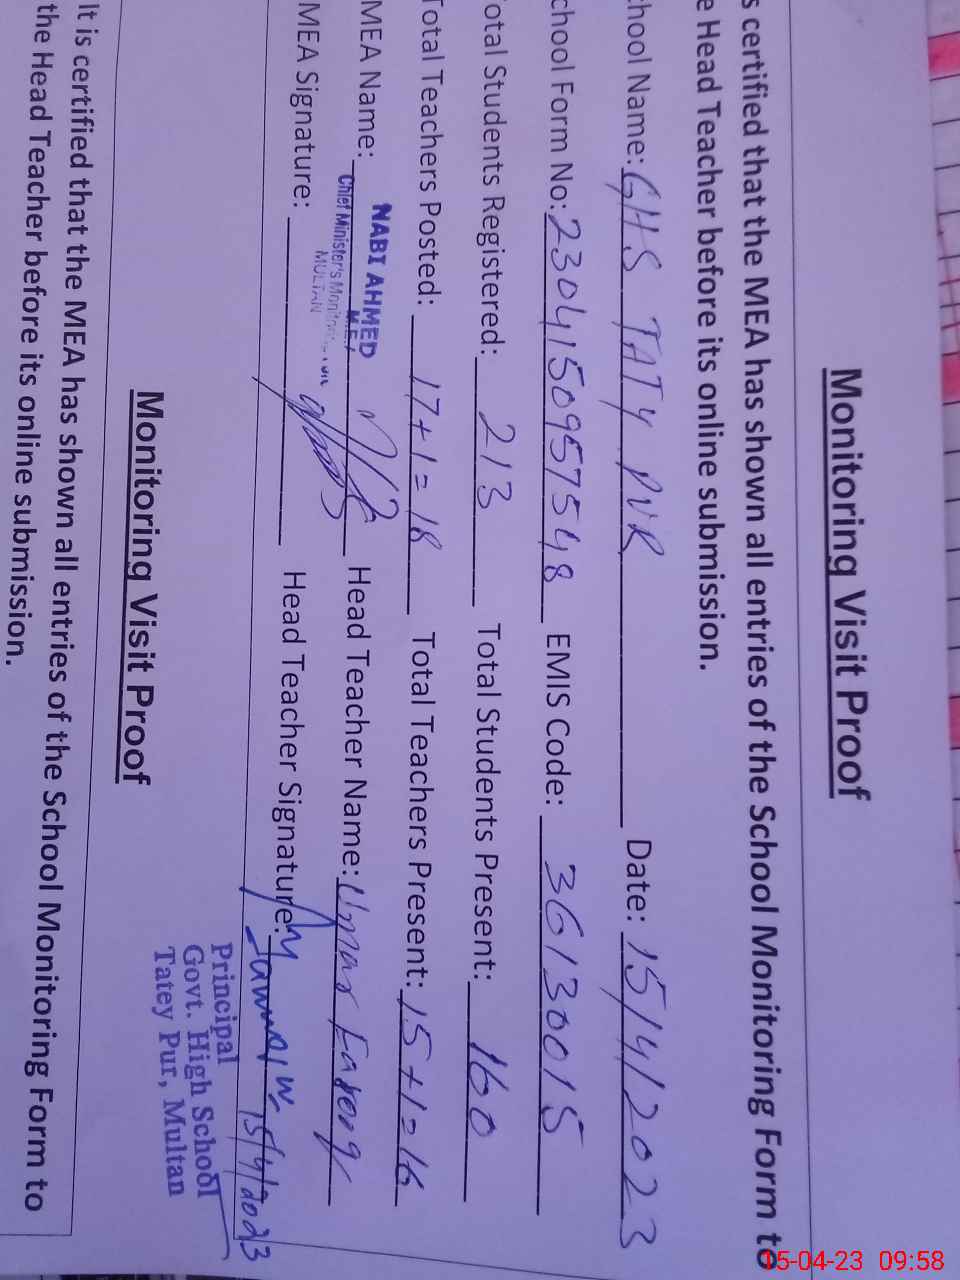 Monitoring Visit Proof
s certified that the MEA has shown all entries of the School Monitoring Form to
e Head Teacher before its online submission.
chool Name: GHS TATY PUR Date: 15/4/2023
chool Form No: 2304150957548 EMIS Code: 36130015
otal Students Registered: 213 Total Students Present: 160
Total Teachers Posted: 17+1=18 Total Teachers Present: 15+1=16
MEA Name: NABI AHMED Head Teacher Name: Umar Farooq
M.E.A
Chief Minister's
MULTAN
MEA Signature: Head Teacher Signature:
15/4/2023
Principal
Govt. High School
Tatey Pur, Multan
Monitoring Visit Proof
It is certified that the MEA has shown all entries of the School Monitoring Form to
the Head Teacher before its online submission.
15-04-23 09:58